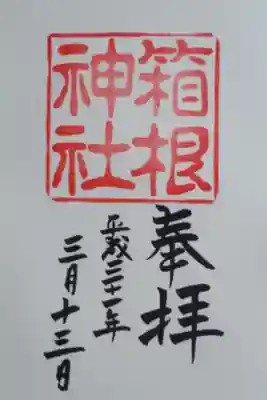 箱根
神社
奉拝
平成三十一年
三月十三日